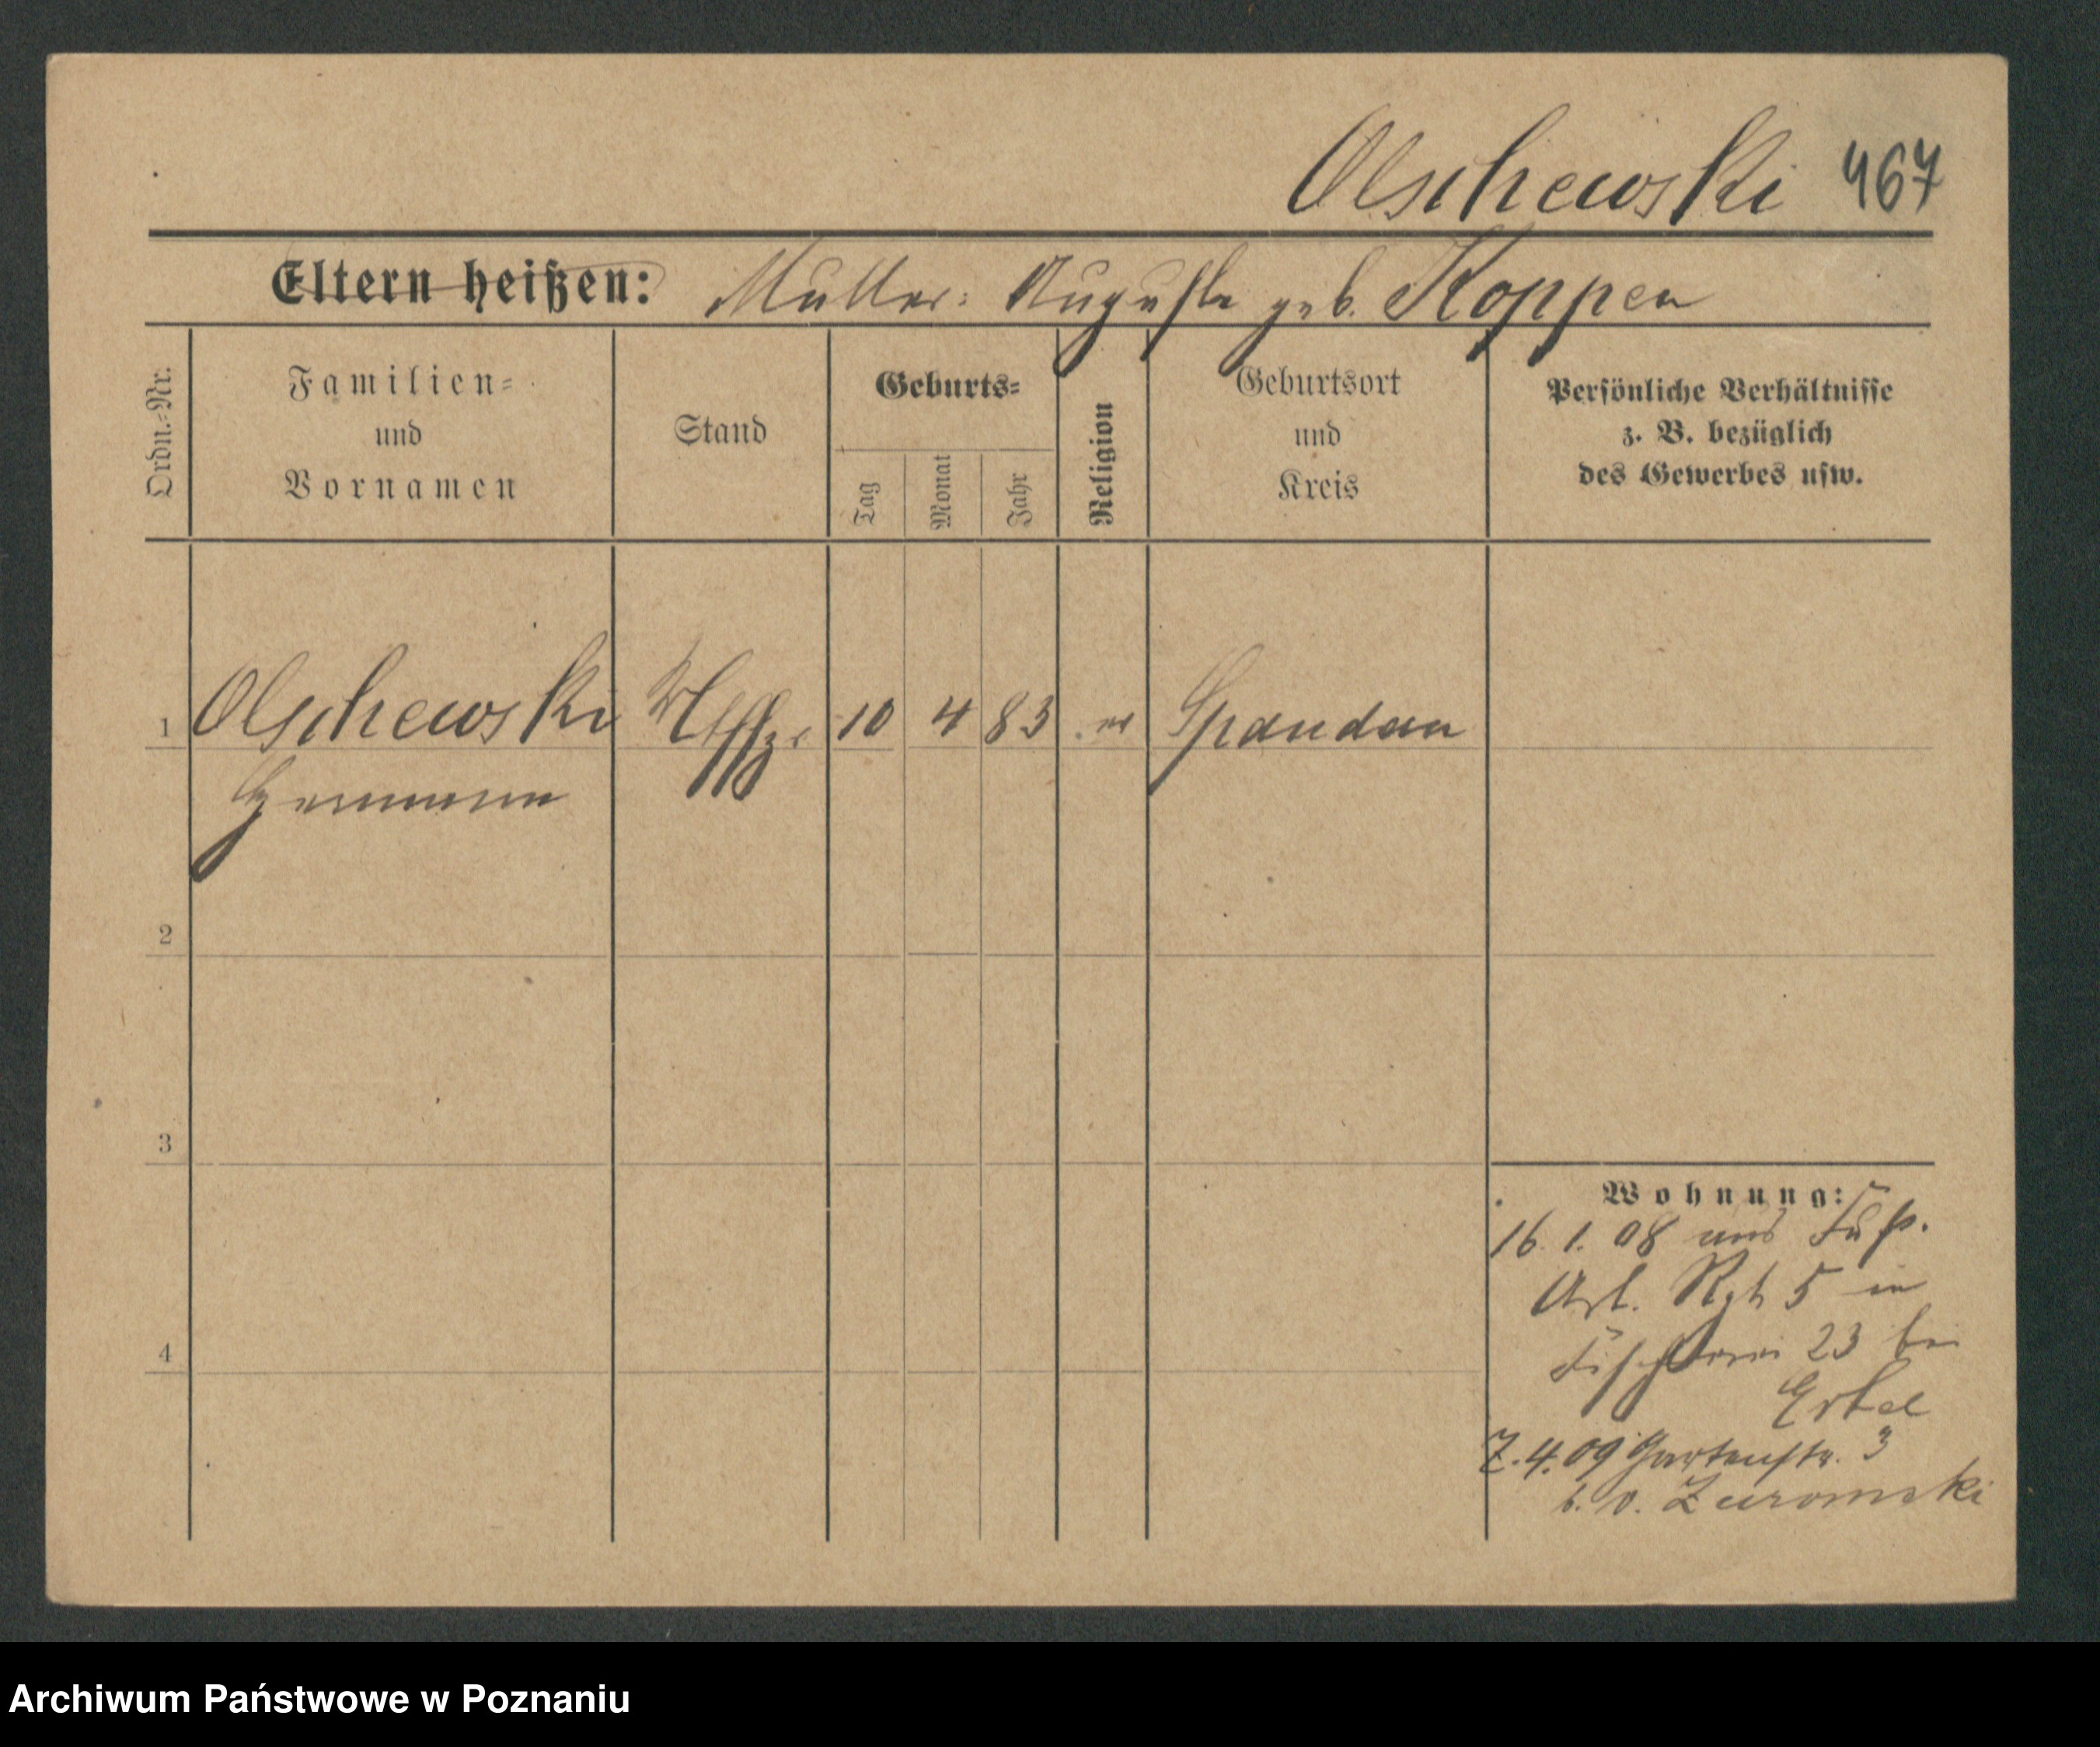 Olschewski 467
Eltern heißen: Mutter: Auguste geb. Koppen
Ordn.-Nr.
Familien-
und
Vornamen
Stand
Geburts-
Tag
Monat
Jahr
Religion
Geburtsort
und
Kreis
Persönliche Verhältnisse
z. B. bezüglich
des Gewerbes usw.
1 Olschewski 10 4 83 Spandau
Hermann
2
3
4
Wohnung:
16. 1. 08 aus Fuß.
Art. Rgt 5 in
Fischerei 23 bei
Ertel
7.4.09 Gartenstr. 3
b. v. Zuromski
Archiwum Państwowe w Poznaniu